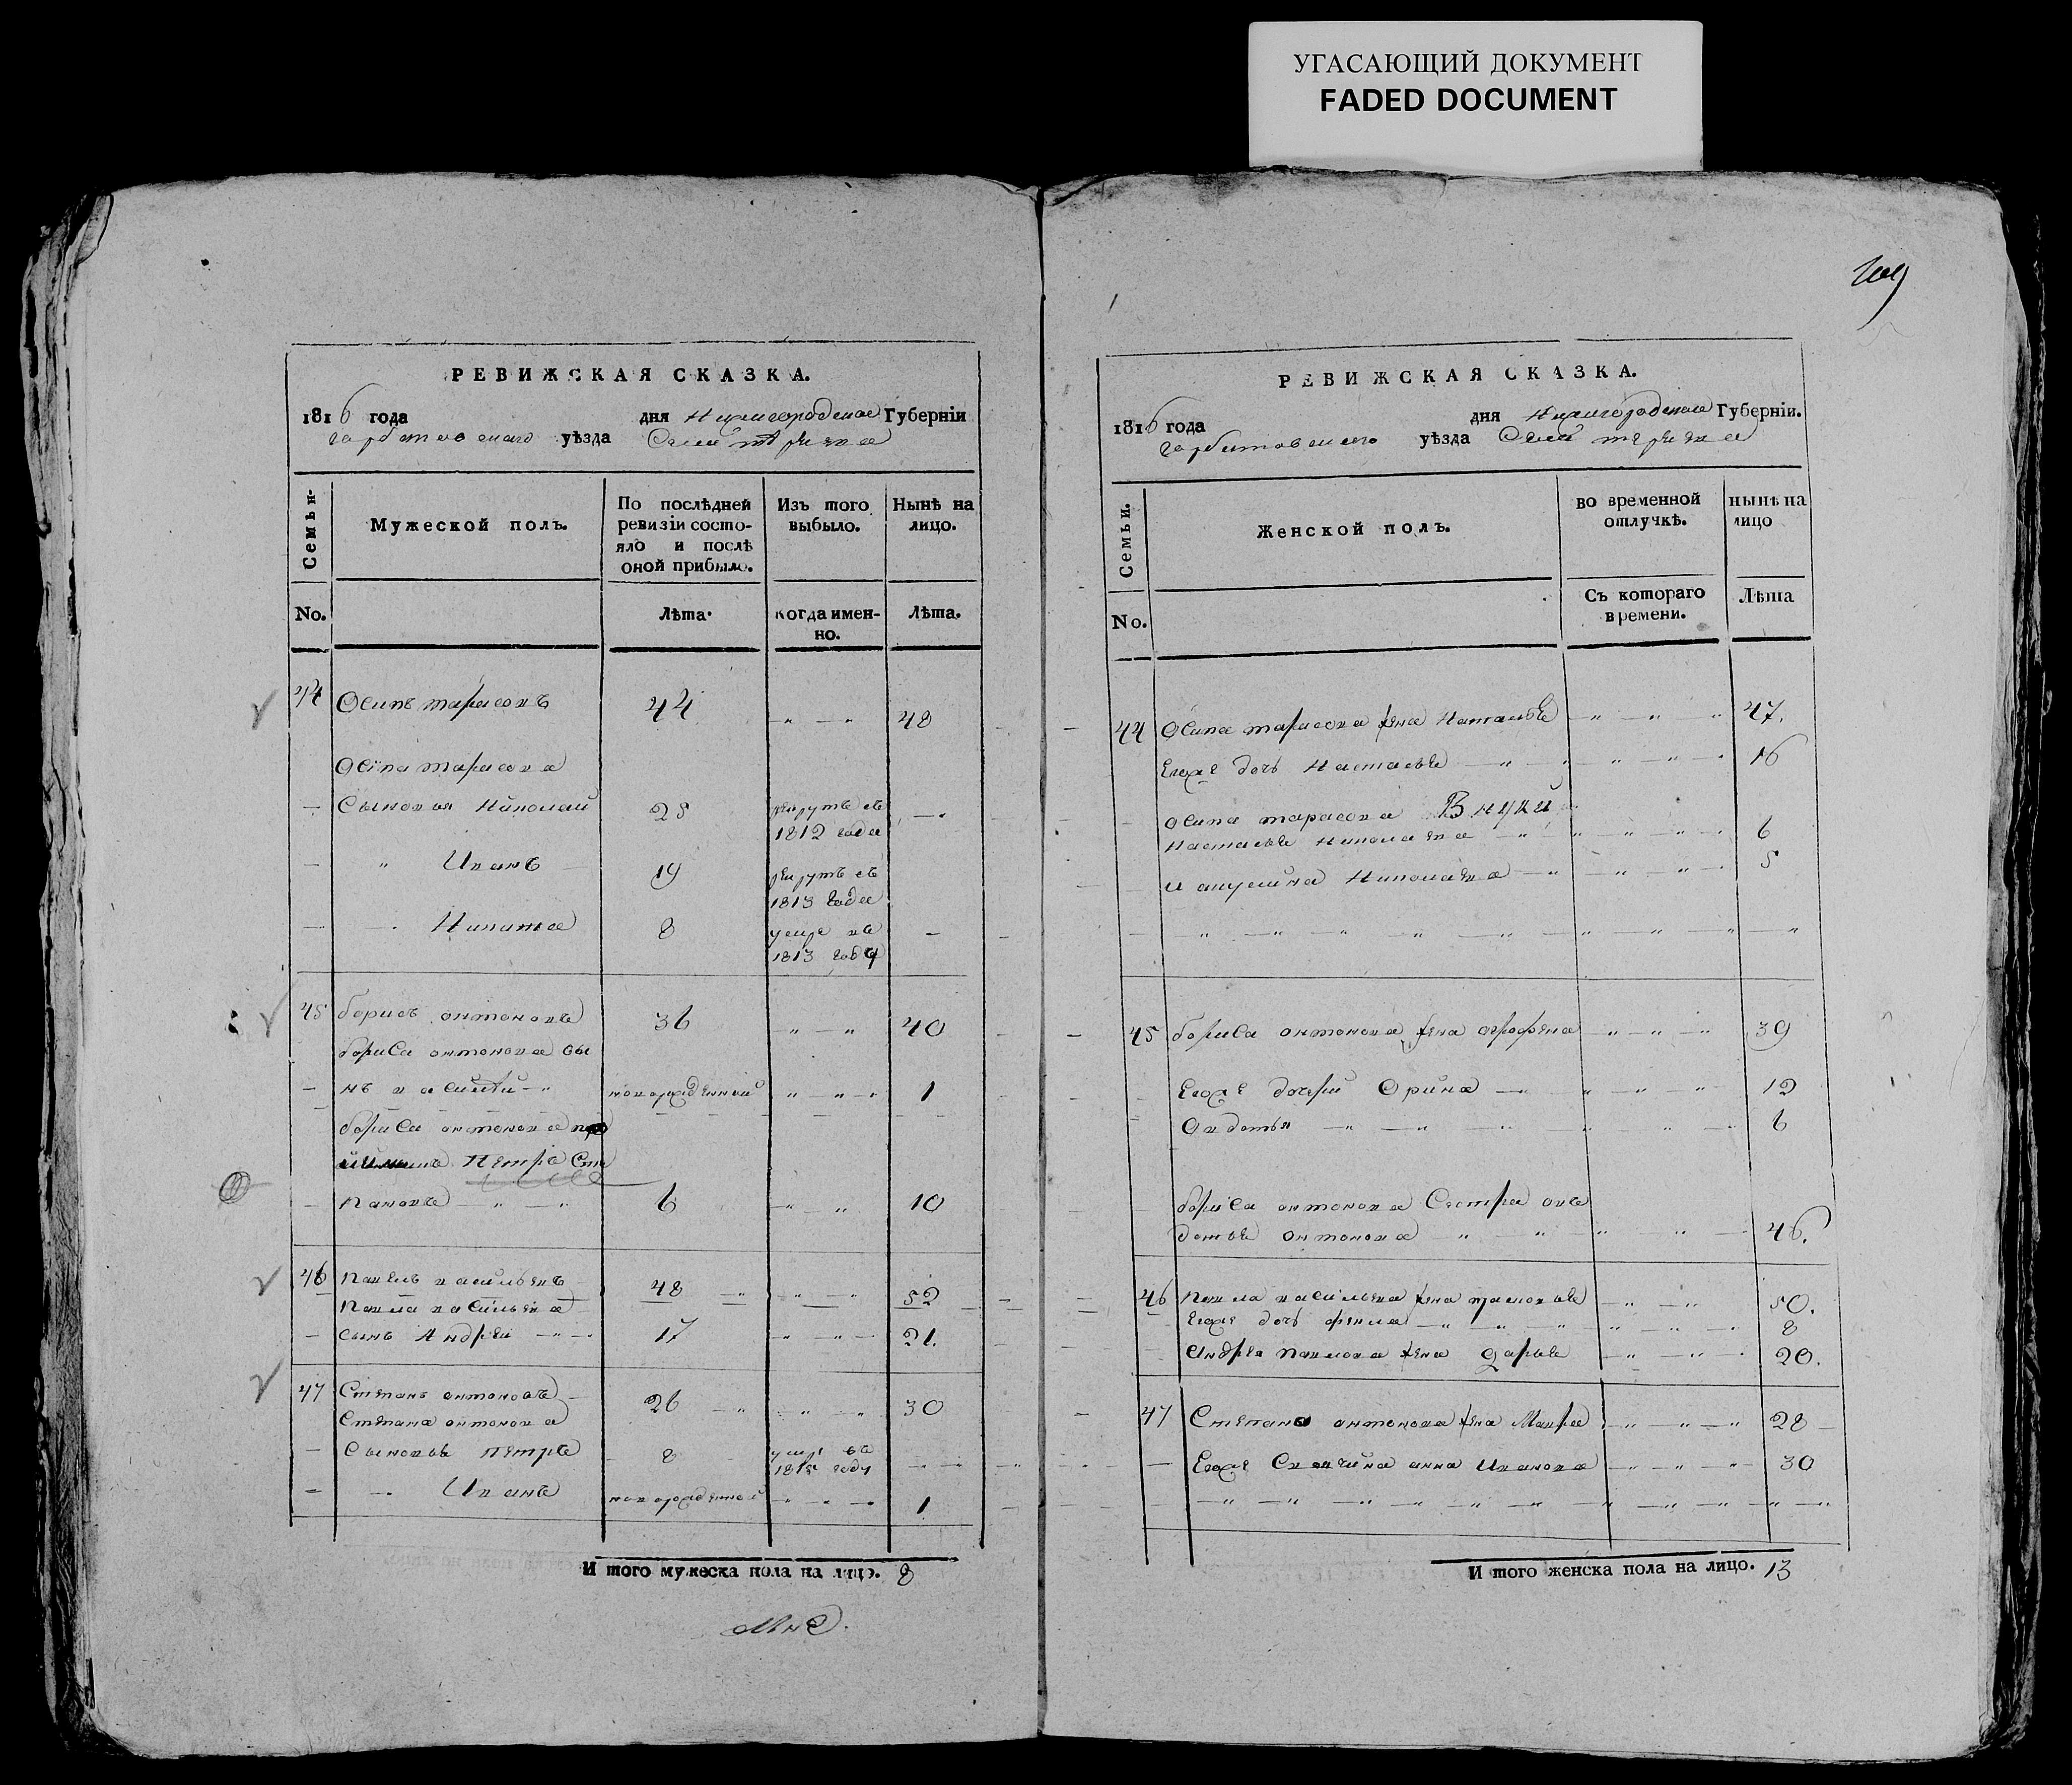 УГАСАЮЩИЙ ДОКУМЕНТ
FADED DOCUMENT
РЕВИЖСКАЯ СКАЗКА.
1816 года дня Нижегородской Губерніи
горбатовскаго уѣзда Села
Семьи.
Мужеской полъ.
По послѣдней ревизіи состо-
яло и послѣ
оной прибыло.
Изъ того
выбыло.
Нынѣ на
лицо.
No.
Лѣта.
когда имен-
но.
Лѣта.
44 Осипъ тарасовъ 44 48
Осіпа тарасова
Сыновья Николай 25 рекрутъ съ
1812 года
Иванъ 19 рекрутъ съ
1813 года
Никита 8 умре въ
1813 году
45 борисъ онтоновъ 36 40
бориса онтонова сы
нъ василий новорожденный 1
бориса онтонова
Петръ Сте
пановъ 6 10
46 павелъ васильевъ 48 52
павла васильева
сынъ Андрей 17 21.
47 Степанъ онтоновъ 26 30
Степана онтонова
Сыновья петръ 8 умре въ
1815 году
Иванъ новорожденной 1
И того мужеска пола на лицо. 8
109
РЕВИЖСКАЯ СКАЗКА.
1816 года дня Нижегородской Губерніи.
горбатовскаго уѣзда Села
Семьи.
Женской полъ.
во временной
отлучкѣ.
нынѣ на
лицо
No.
Съ котораго
времени.
Лѣта
44 Осипа тарасова жена Наталья 47.
Егоже дочь Настасья 16
осипа тарасова Внуки
Настасья Николаева 6
и акулина Николаева 5
45 бориса онтонова жена 39
Егоже дочери Орина 12
Овдотья 6
бориса онтонова Сестра овъ
дотья онтонова 46.
46 павла васильева жена 50.
Егоже дочь фекла 8
Андрея павлова жена дарья 20.
47 Степана онтонова жена Мавра 28
Егоже Свояч ина анна Иванова 30
И того женска пола на лицо. 13